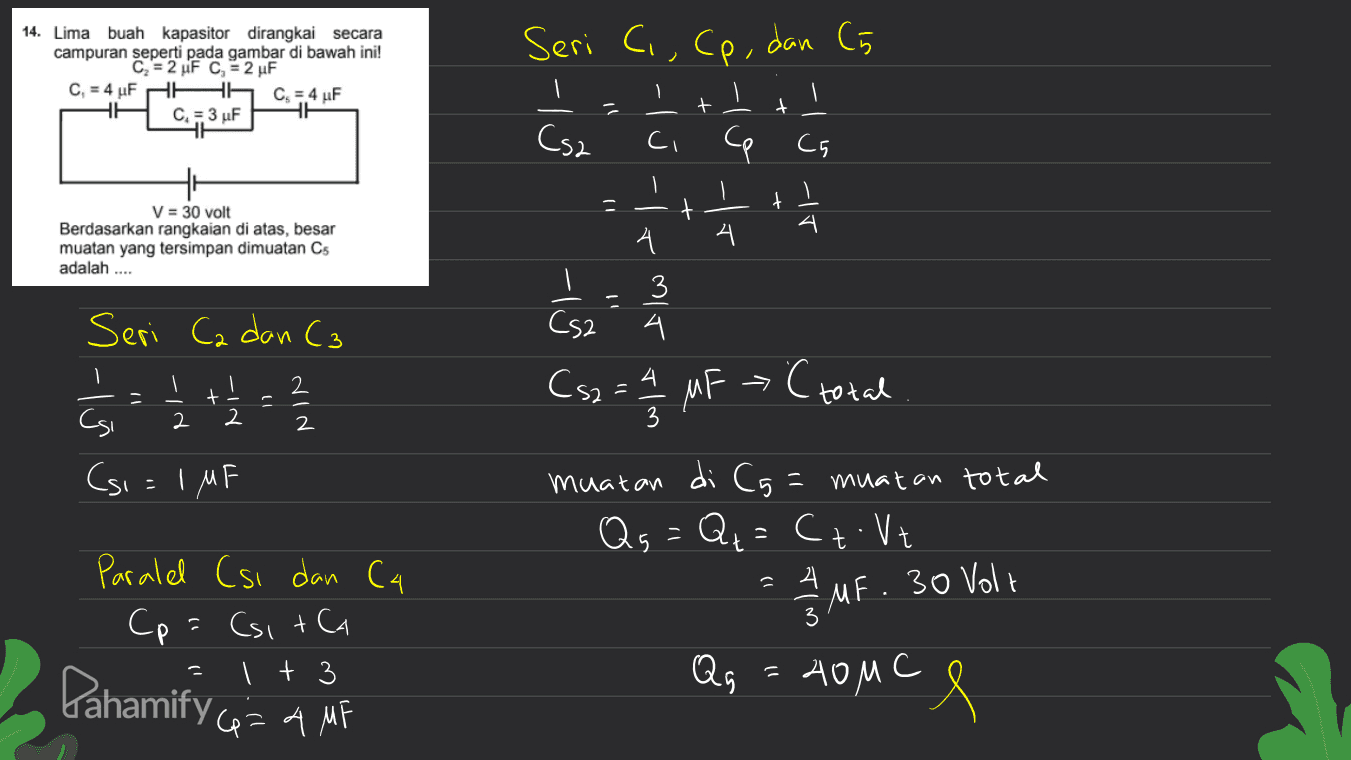 14. Lima buah kapasitor dirangkai secara
campuran seperti pada gambar di bawah ini!
C₂ = 2 μF C₃ = 2 μF
C₁ = 4 μF
C₅ = 4 μF
C₄ = 3 μF
V = 30 volt
Berdasarkan rangkaian di atas, besar
muatan yang tersimpan dimuatan C5
adalah ....
Seri C₂ dan C₃
1/Cs1 = 1/2 + 1/2 = 2/2
Cs1 = 1 μF
Paralel Cs1 dan C4
Cp = Cs1 + C4
= 1 + 3
Cp = 4 μF
Seri C1, Cp, dan C5
1/Cs2 = 1/C1 + 1/Cp + 1/C5
= 1/4 + 1/4 + 1/4
1/Cs2 = 3/4
Cs2 = 4/3 μF → Ctotal.
muatan di C5 = muatan total
Q5 = Qt = Ct . Vt
= 4/3 μF . 30 Volt
Q5 = 40 μC
Pahamify